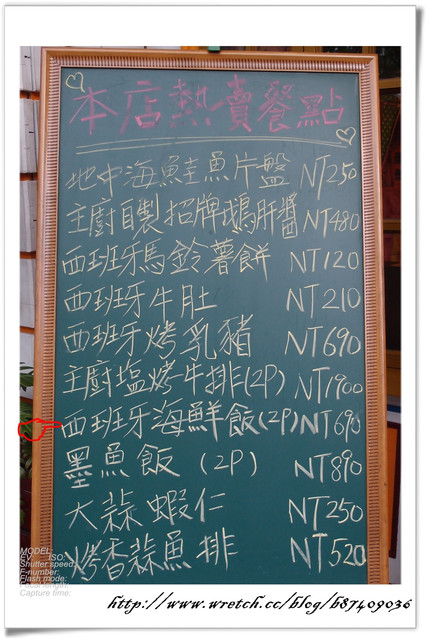 本店熱賣餐點
地中海鮭魚片盤 NT250
主廚自製招牌鵝肝醬 NT480
西班牙馬鈴薯餅 NT120
西班牙牛肚 NT210
西班牙烤乳豬 NT690
主廚塩烤牛排(2P) NT1900
西班牙海鮮飯(2P) NT690
墨魚飯 (2P) NT890
大蒜蝦仁 NT250
烤香蒜魚排 NT520
MODEL:
EV: ISO:
Shutter speed:
F-number:
Flash mode:
Focal length:
Capture time:
http://www.wretch.cc/blog/b87409036